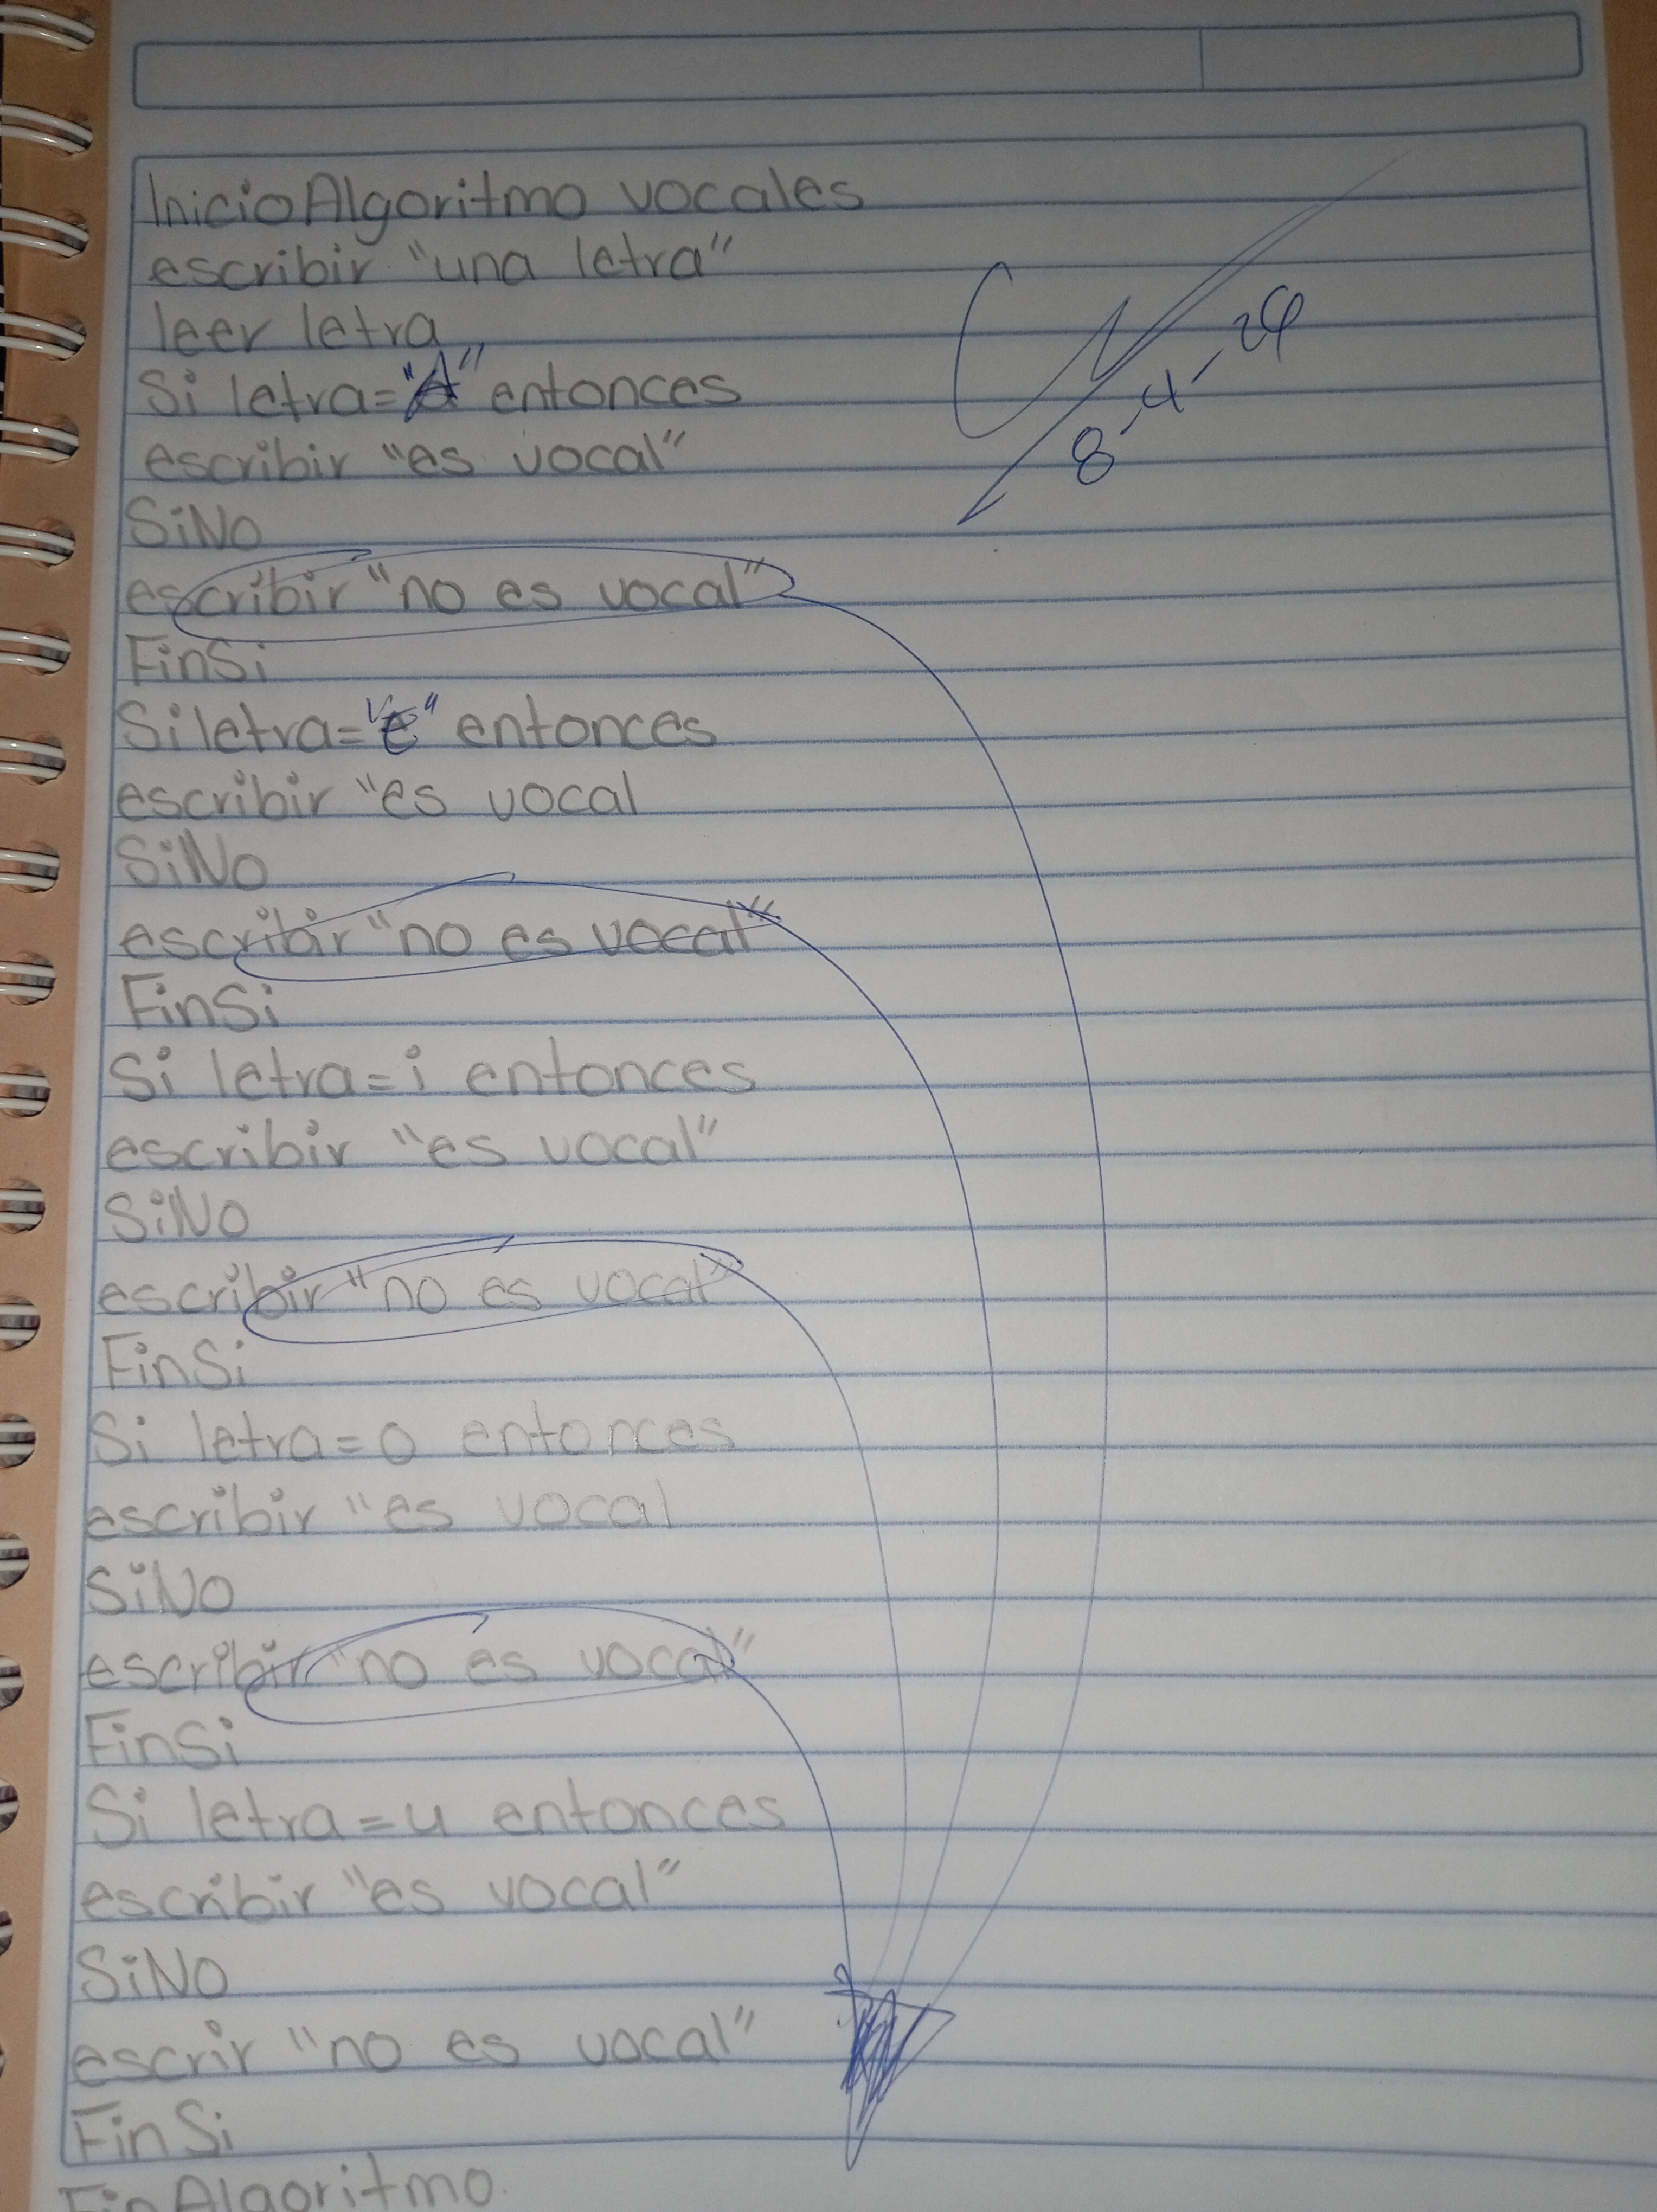 InicioAlgoritmo vocales
escribir "una letra"
leer letra
Si letra="A" entonces
escribir "es vocal"
SiNo
escribir "no es vocal"
FinSi
Si letra="e" entonces
escribir "es vocal
SiNo
escribir "no es vocal"
FinSi
Si letra=i entonces
escribir "es vocal"
SiNo
escribir "no es vocal"
FinSi
Si letra=o entonces
escribir "es vocal
SiNo
escribir "no es vocal"
FinSi
Si letra=u entonces
escribir "es vocal"
SiNo
escrir "no es vocal"
FinSi
FinAlgoritmo
8-4-24